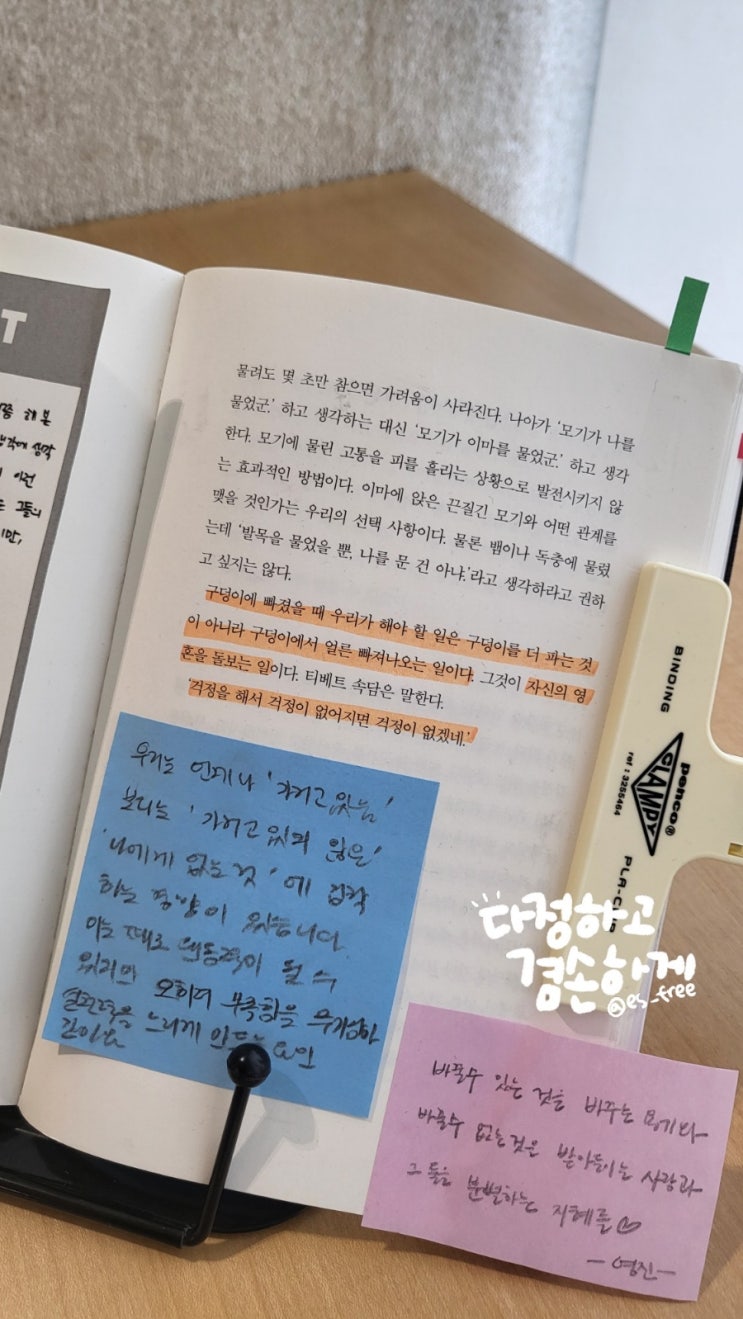 T
해 본
이건
물려도 몇 초만 참으면 가려움이 사라진다. 나아가 '모기가 나를
물었군.' 하고 생각하는 대신 '모기가 이마를 물었군.' 하고 생각
한다. 모기에 물린 고통을 피를 흘리는 상황으로 발전시키지 않
는 효과적인 방법이다. 이마에 앉은 끈질긴 모기와 어떤 관계를
맺을 것인가는 우리의 선택 사항이다. 물론 뱀이나 독충에 물렸
는데 '발목을 물었을 뿐, 나를 문 건 아냐.'라고 생각하라고 권하
고 싶지는 않다.
구덩이에 빠졌을 때 우리가 해야 할 일은 구덩이를 더 파는 것
이 아니라 구덩이에서 얼른 빠져나오는 일이다. 그것이 자신의 영
혼을 돌보는 일이다. 티베트 속담은 말한다.
'걱정을 해서 걱정이 없어지면 걱정이 없겠네.'
우리는 언제나 '가지고 있는'
보다는 '가지고 있지 않은'
'나에게 없는 것'에 집착
하는 경향이 있습니다.
이는 때로 원동력이 될 수
있지만 오히려 부족함을
느끼게 만드는 요인
BINDING
penco®
CLAMPY
ref : 3255464
PLA-C
다정하고
겸손하게
@es_free
바꿀수 있는 것을 바꾸는 용기와
바꿀수 없는것은 받아들이는 사랑과
그 둘을 분별하는 지혜를♡
-영진-